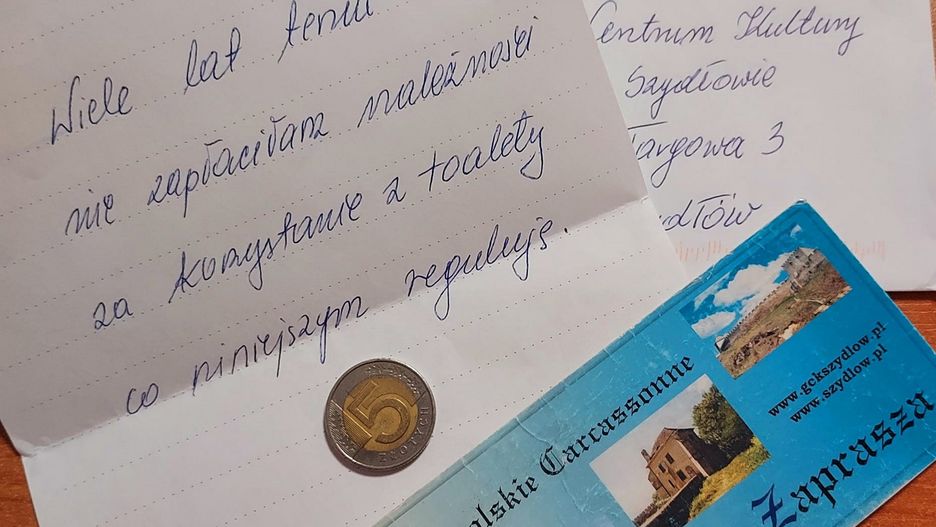 Wiele lat temu
nie zapłaciłam należności
za korzystanie z toalety
co niniejszym reguluję.
Centrum Kultury
Szydłowie
Targowa 3
5
ZŁOTYCH
Carcassonne
www.gckszydlow.pl
www.szydlow.pl
Zaprasza